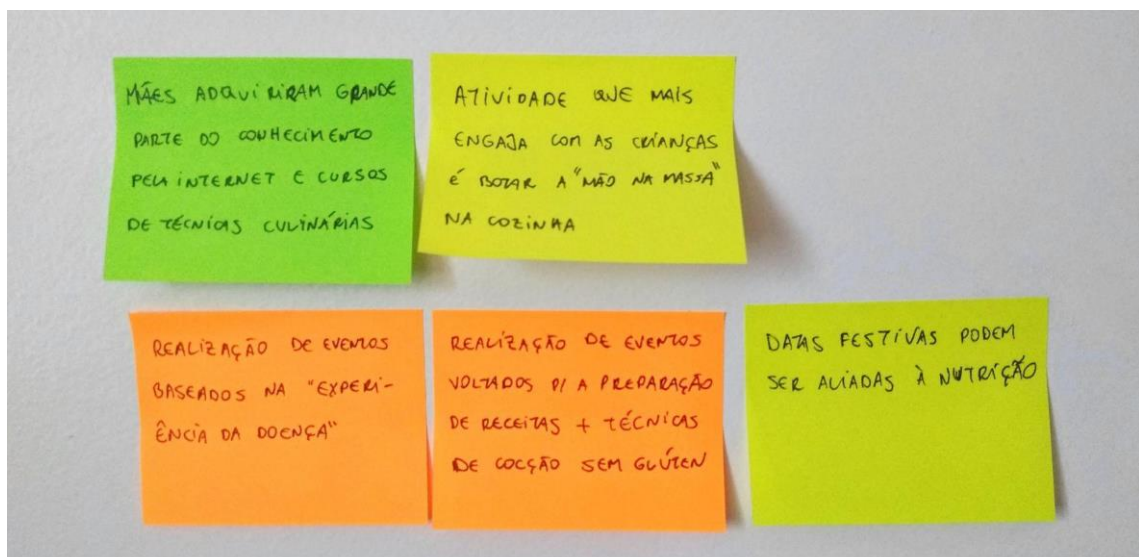 MÃES ADQUIRIRAM GRANDE
PARTE DO CONHECIMENTO
PELA INTERNET E CURSOS
DE TÉCNICAS CULINÁRIAS
ATIVIDADE QUE MAIS
ENGAJA COM AS CRIANÇAS
É BOTAR A "MÃO NA MASSA"
NA COZINHA
REALIZAÇÃO DE EVENTOS
BASEADOS NA "EXPERI-
ÊNCIA DA DOENÇA"
REALIZAÇÃO DE EVENTOS
VOLTADOS P/ A PREPARAÇÃO
DE RECEITAS + TÉCNICAS
DE COCÇÃO SEM GLÚTEN
DATAS FESTIVAS PODEM
SER ALIADAS À NUTRIÇÃO